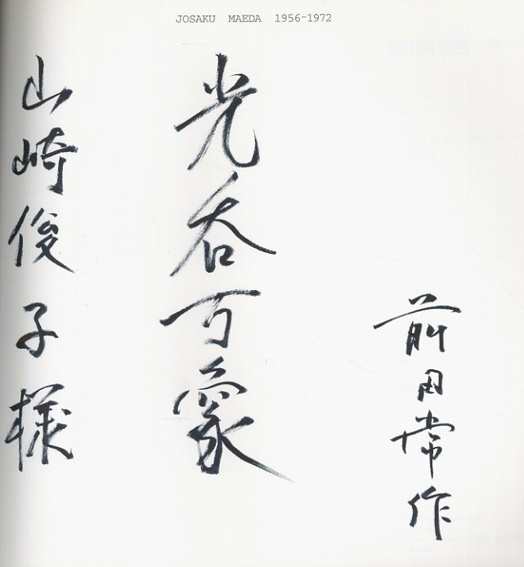 JOSAKU MAEDA 1956-1972
前田常作
光呑万象
山崎俊子様